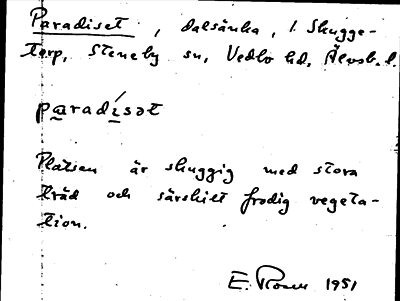 Paradiset, dalsänka, i Skugge-
torp, Steneby sn, Vedbo hd, Älvsb. l.
paradísət
Platsen är skuggig med stora
träd och särskilt frodig vegeta-
tion.
E. Rosen 1951